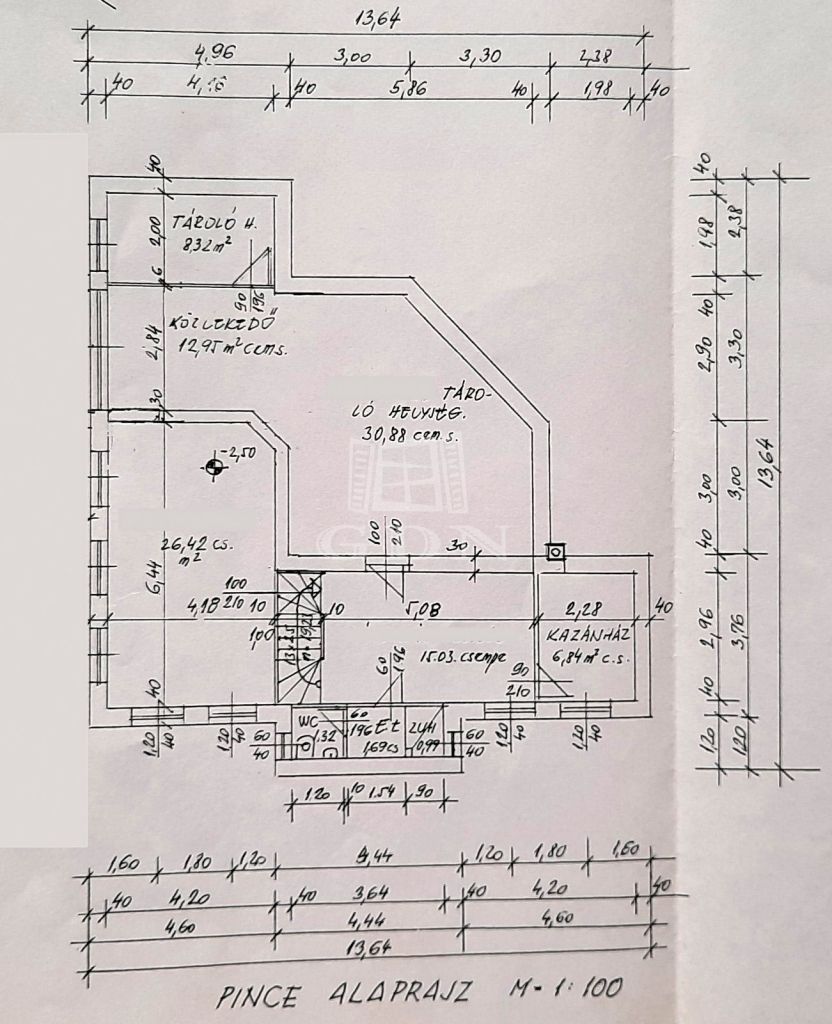 13,64
4,96 3,00 3,30 2,38
40 40 5,86 40 1,98 40
40
TÁROLÓ H.
8,32 m²
2,00
6
90
196
KÖZLEKEDŐ
12,95 m² cem s.
2,84
30
TÁRO-
LÓ HELYSÉG.
30,88 cem. s.
-2,50
GDN
26,42 cs.
m²
6,44
100
210
30
100
4,18 210 10
10
5,08
2,28
40
100
13x25
KAZÁNHÁZ
6,84 m² c.s.
60
196
15.03. csempe
90
210
40
WC
1.32
60
196
Et
1,69 cs
ZUH
0,99
60
40
60
40
1,20
40
1,20
40
1,20
40
1,20
40
1.20 10 1.54 90
40
1,98 2,38
40
2,90 3,30
3,00 3,00
13,64
40
2,96 3,76
40
1,20 1,20
1,60 1,80 1,20 4,44 1,20 1,80 1,60
40 4,20 40 3,64 40 4,20 40
4,60 4,44 4,60
13,64
PINCE ALAPRAJZ M = 1:100